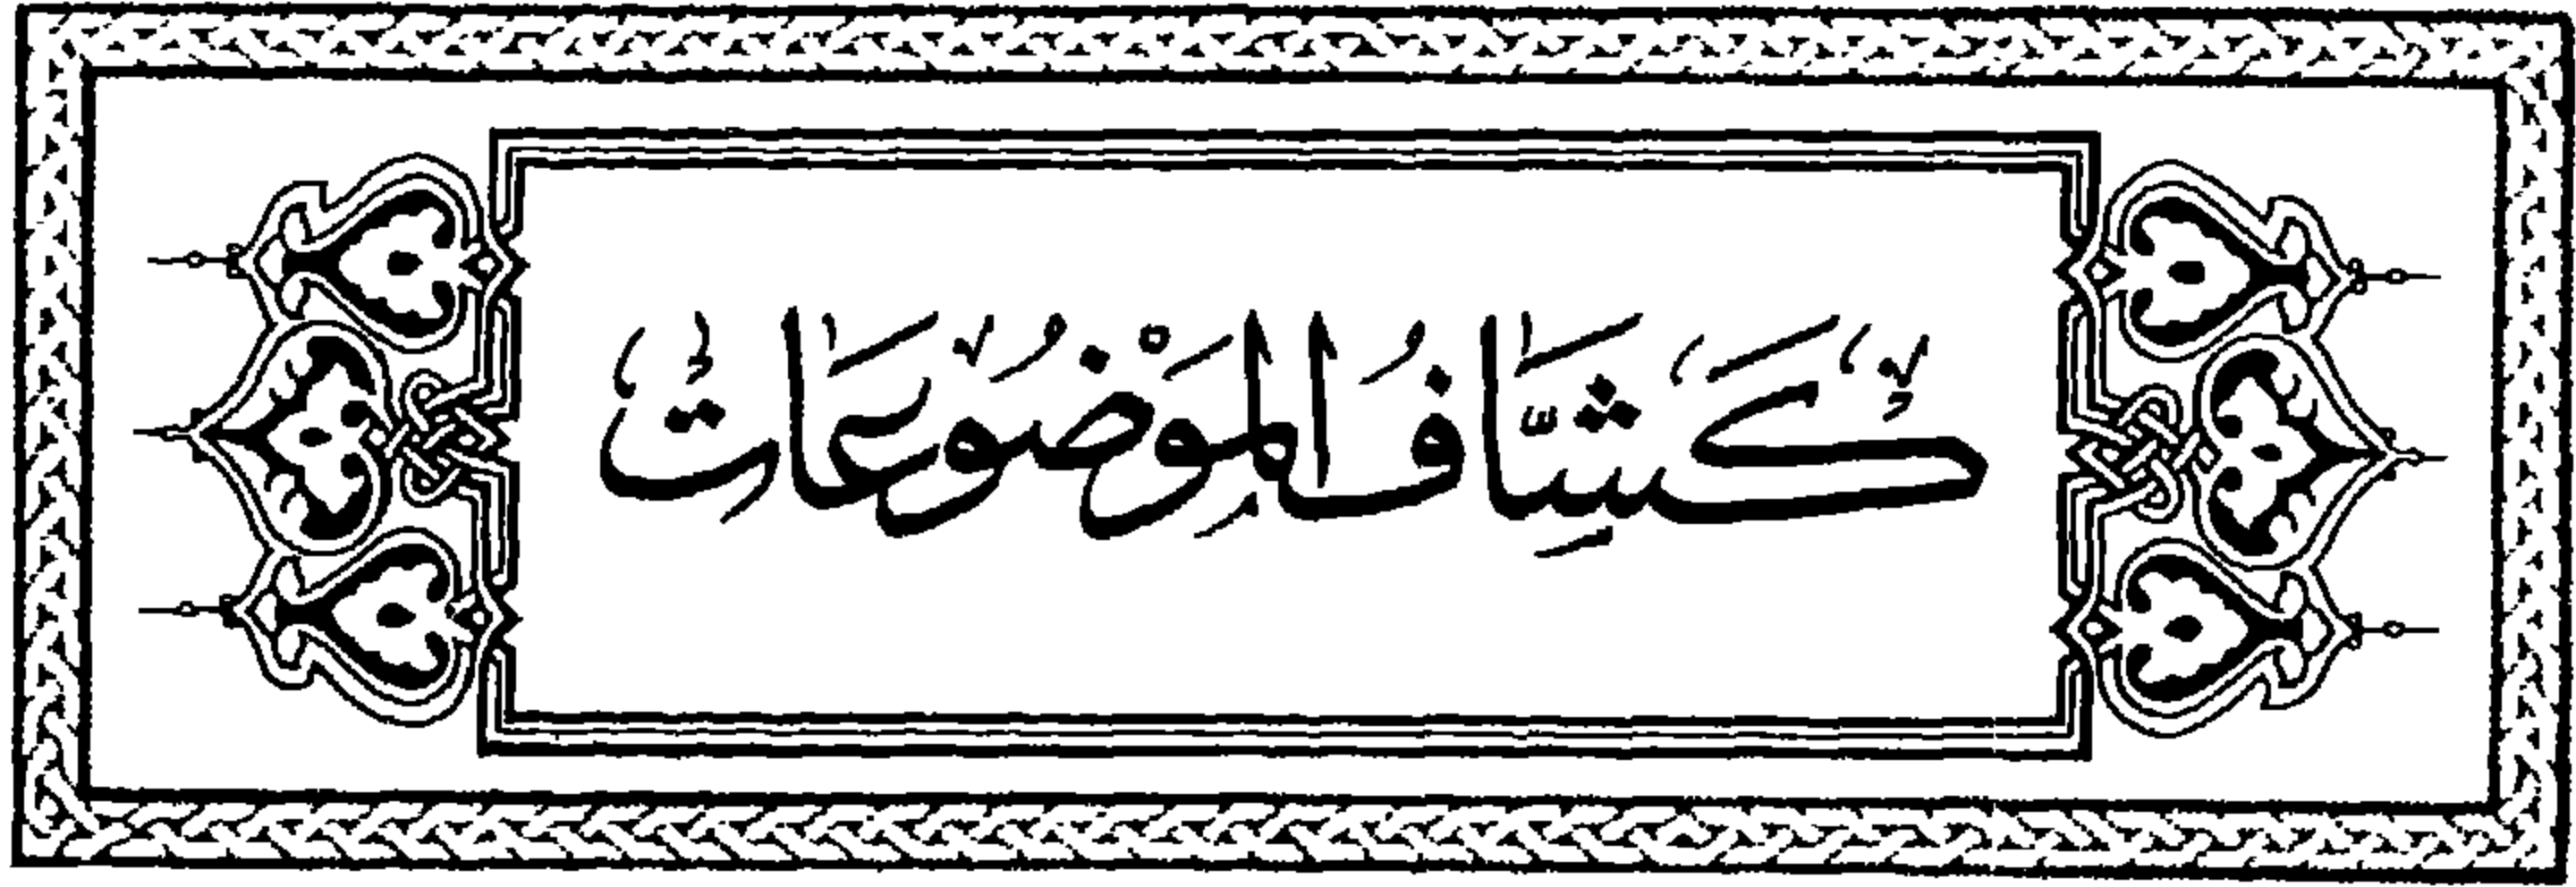 كَشَّافُ المَوْضُوعَاتِ